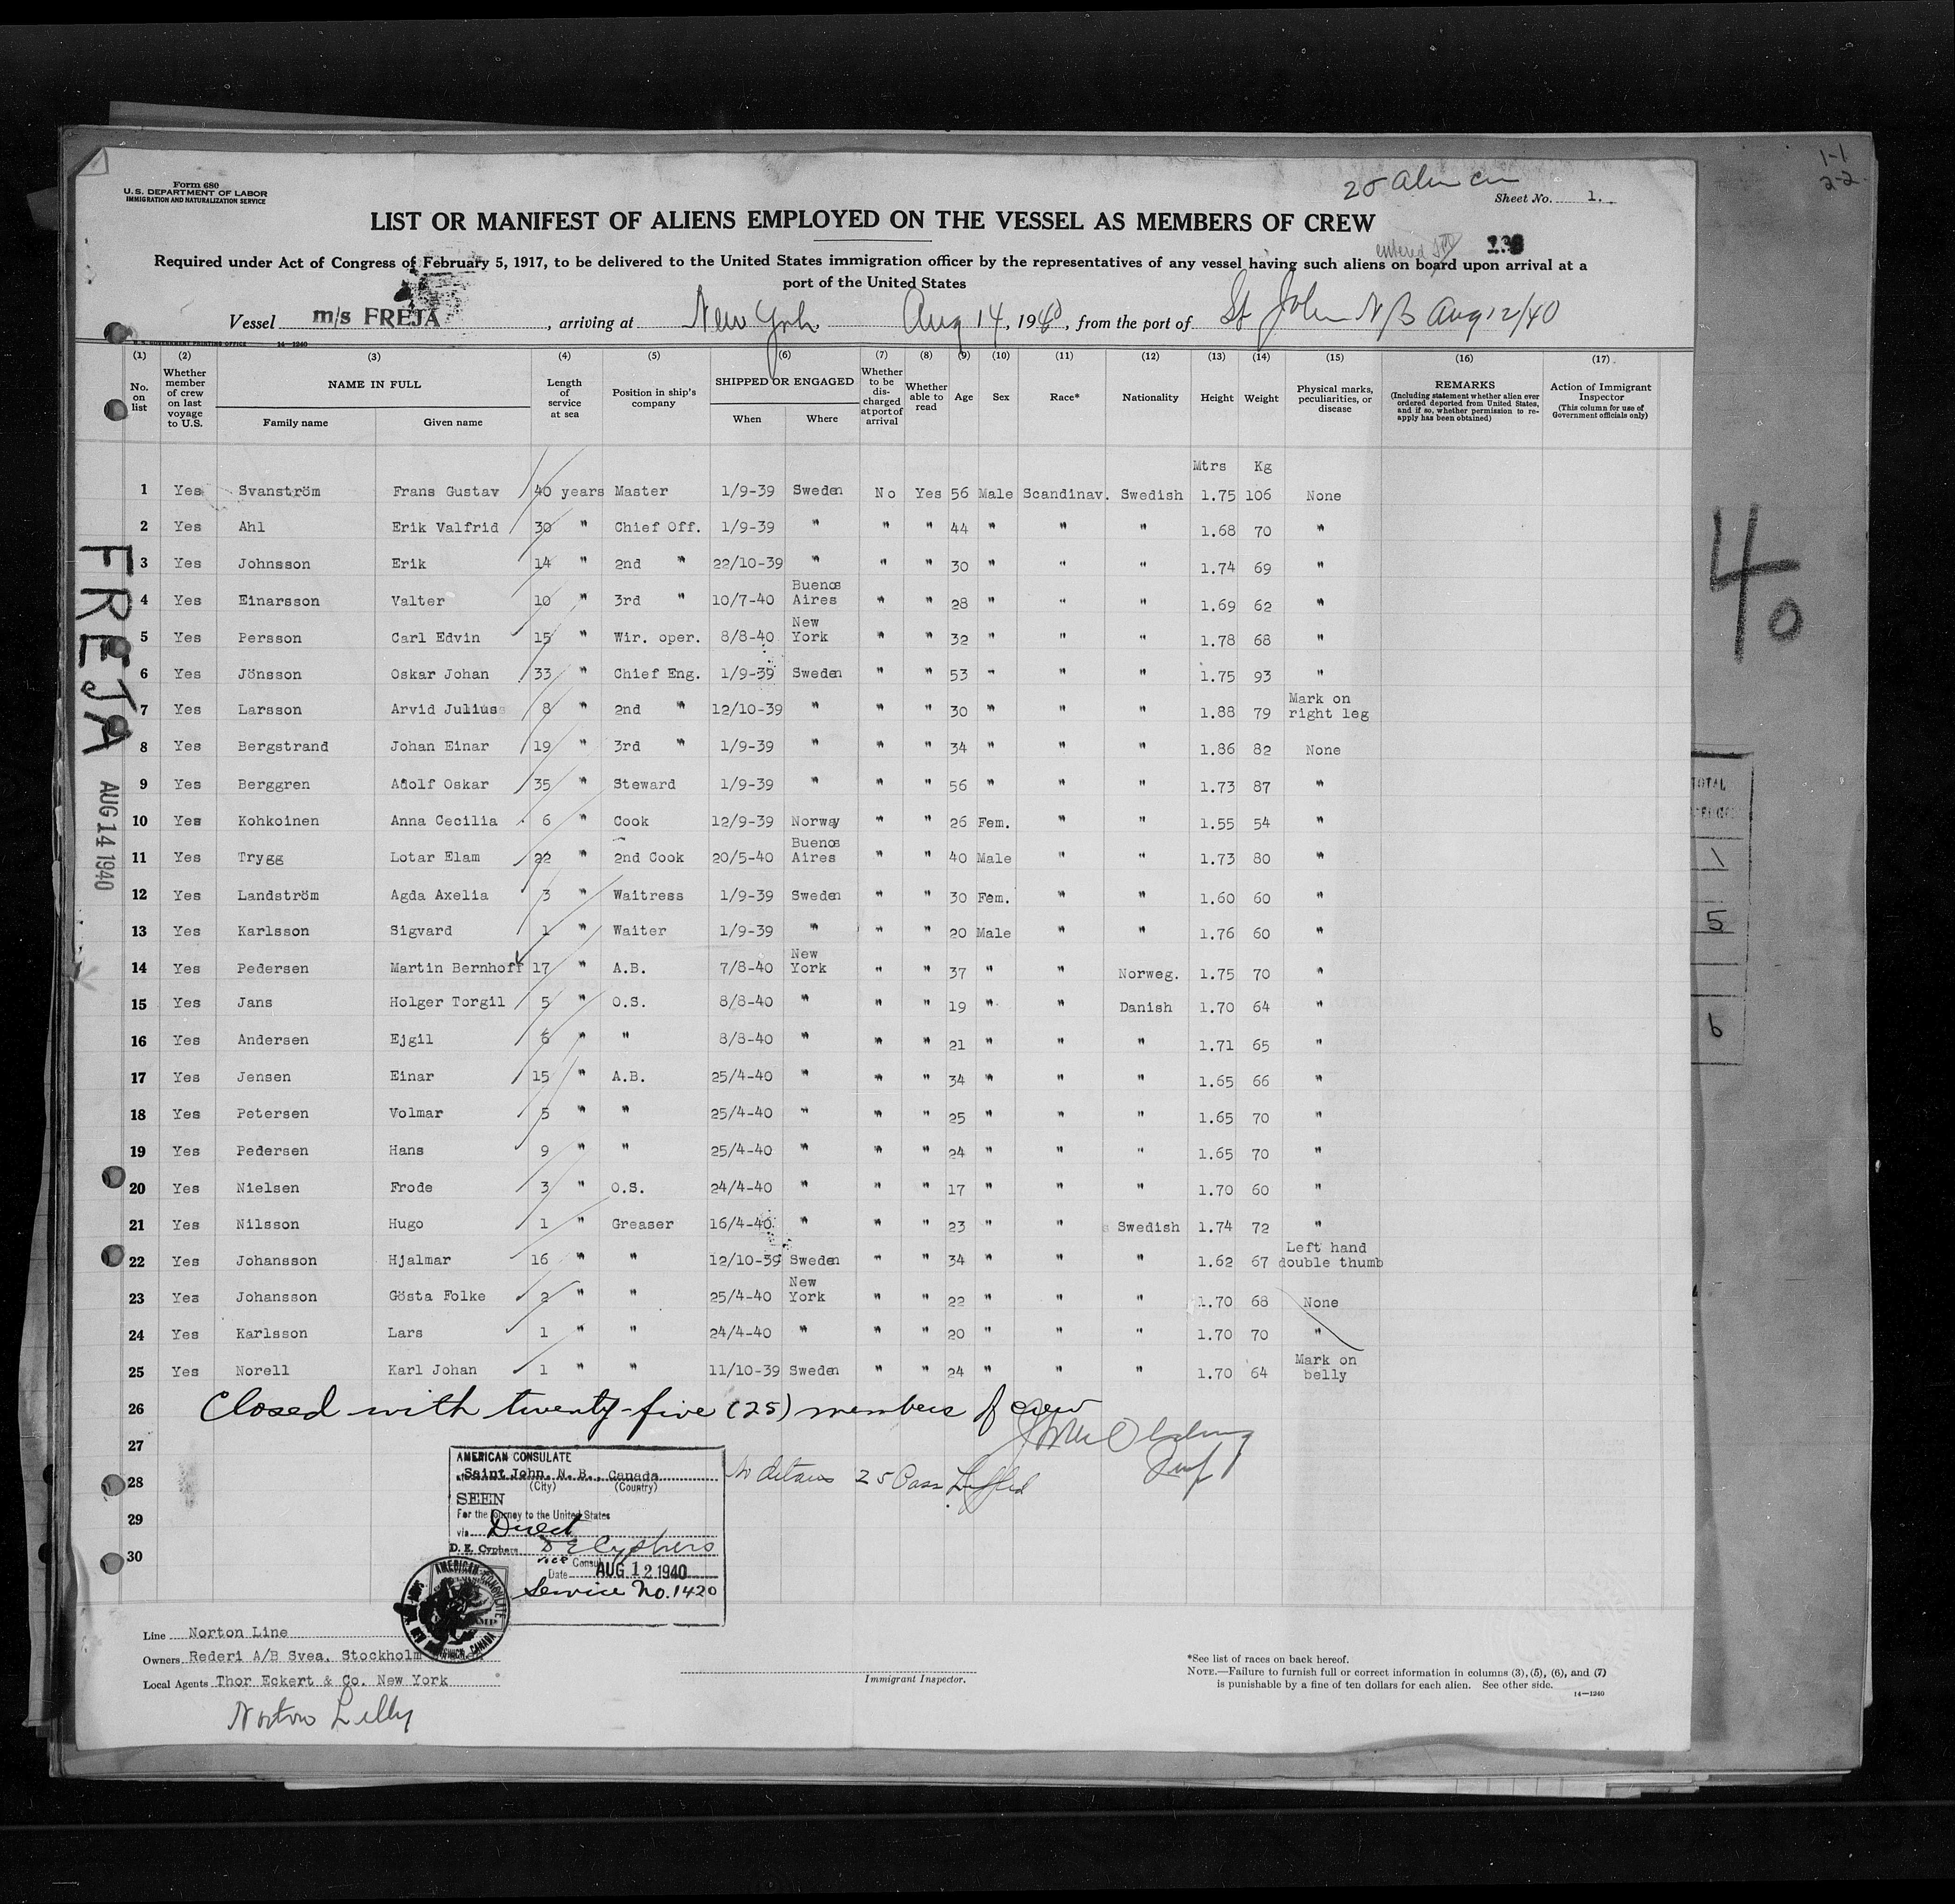 1-1
2-2
Form 680
U.S. DEPARTMENT OF LABOR
IMMIGRATION AND NATURALIZATION SERVICE
25 Alien
Sheet No. 1.
LIST OR MANIFEST OF ALIENS EMPLOYED ON THE VESSEL AS MEMBERS OF CREW
entered
Required under Act of Congress of February 5, 1917, to be delivered to the United States immigration officer by the representatives of any vessel having such aliens on board upon arrival at a
port of the United States
Vessel m/s FREJA, arriving at New York Aug 14, 1940, from the port of St John N B Aug 12/40
U.S. GOVERNMENT PRINTING OFFICE 14—1240
(1) (2) (3) (4) (5) (6) (7) (8) (9) (10) (11) (12) (13) (14) (15) (16) (17)
No. on list
Whether member of crew on last voyage to U.S.
NAME IN FULL
Family name
Given name
Length of service at sea
Position in ship's company
SHIPPED OR ENGAGED
When
Where
Whether to be discharged at port of arrival
Whether able to read
Age
Sex
Race*
Nationality
Height
Weight
Physical marks, peculiarities, or disease
REMARKS
(Including statement whether alien ever ordered deported from United States, and if so, whether permission to re-apply has been obtained)
Action of Immigrant Inspector
(This column for use of Government officials only)
Mtrs Kg
1 Yes Svanström Frans Gustav 40 years Master 1/9-39 Sweden No Yes 56 Male Scandinav. Swedish 1.75 106 None
2 Yes Ahl Erik Valfrid 30 " Chief Off. 1/9-39 " " " 44 " " " 1.68 70 "
3 Yes Johnsson Erik 14 " 2nd " 22/10-39 " " " 30 " " " 1.74 69 "
4 Yes Einarsson Valter 10 " 3rd " 10/7-40 Buenos Aires " " 28 " " " 1.69 62 "
5 Yes Persson Carl Edvin 15 " Wir. oper. 8/8-40 New York " " 32 " " " 1.78 68 "
6 Yes Jönsson Oskar Johan 33 " Chief Eng. 1/9-39 Sweden " " 53 " " " 1.75 93 "
7 Yes Larsson Arvid Julius 8 " 2nd " 12/10-39 " " " 30 " " " 1.88 79 Mark on right leg
8 Yes Bergstrand Johan Einar 19 " 3rd " 1/9-39 " " " 34 " " " 1.86 82 None
9 Yes Berggren Adolf Oskar 35 " Steward 1/9-39 " " " 56 " " " 1.73 87 "
10 Yes Kohkoinen Anna Cecilia 6 " Cook 12/9-39 Norway " " 26 Fem. " " 1.55 54 "
11 Yes Trygg Lotar Elam 22 " 2nd Cook 20/5-40 Buenos Aires " " 40 Male " " 1.73 80 "
12 Yes Landström Agda Axelia 3 " Waitress 1/9-39 Sweden " " 30 Fem. " " 1.60 60 "
13 Yes Karlsson Sigvard 1 " Waiter 1/9-39 " " " 20 Male " " 1.76 60 "
14 Yes Pedersen Martin Bernhoff 17 " A.B. 7/8-40 New York " " 37 " " Norweg. 1.75 70 "
15 Yes Jans Holger Torgil 5 " O.S. 8/8-40 " " " 19 " " Danish 1.70 64 "
16 Yes Andersen Ejgil 6 " " 8/8-40 " " " 21 " " " 1.71 65 "
17 Yes Jensen Einar 15 " A.B. 25/4-40 " " " 34 " " " 1.65 66 "
18 Yes Petersen Volmar 5 " " 25/4-40 " " " 25 " " " 1.65 70 "
19 Yes Pedersen Hans 9 " " 25/4-40 " " " 24 " " " 1.65 70 "
20 Yes Nielsen Frode 3 " O.S. 24/4-40 " " " 17 " " " 1.70 60 "
21 Yes Nilsson Hugo 1 " Greaser 16/4-40 " " " 23 " " Swedish 1.74 72 "
22 Yes Johansson Hjalmar 16 " " 12/10-39 Sweden " " 34 " " " 1.62 67 Left hand double thumb
23 Yes Johansson Gösta Folke 2 " " 25/4-40 New York " " 22 " " " 1.70 68 None
24 Yes Karlsson Lars 1 " " 24/4-40 " " " 20 " " " 1.70 70 "
25 Yes Norell Karl Johan 1 " " 11/10-39 Sweden " " 24 " " " 1.70 64 Mark on belly
26 Closed with twenty-five (25) members of crew
27
28
29
30
AMERICAN CONSULATE
Saint John, N. B., Canada
(City) (Country)
SEEN
For the journey to the United States
via Direct
D. E. Cyphers D E Cyphers
vice Consul
Date AUG 12 1940
Service No. 1420
AMERICAN CONSULATE
CANADA
25 Pass
FREJA
AUG 14 1940
40
TOTAL
1
5
6
Line Norton Line
Owners Rederi A/B Svea, Stockholm
Local Agents Thor Eckert & Co. New York
Norton Lilly
Immigrant Inspector.
*See list of races on back hereof.
NOTE.—Failure to furnish full or correct information in columns (3), (5), (6), and (7)
is punishable by a fine of ten dollars for each alien. See other side.
14—1240